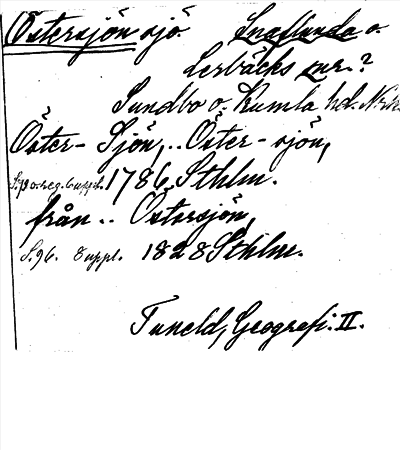 Östersjön sjö Snaflunda o.
Lerbäcks snr.?
Sundbo o. Kumla hd. Nrke
Öster- Sjön,.. Öster-sjön,
S. 73 o. reg. 6 uppl. 1786. Sthlm.
från.. Östersjön,
S. 96. 8 uppl. 1828 Sthlm.
Tuneld, Geografi. II.